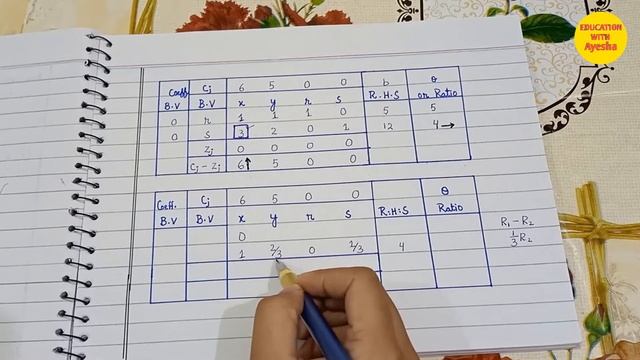 EDUCATION
WITH
Ayesha
Coeff. Cj 6 5 0 0 b θ
B.V B.V x y r s R.H.S or Ratio
0 r 1 1 1 0 5 5
0 s 3 2 0 1 12 4→
Zj 0 0 0 0
Cj - Zj 6↑ 5 0 0
Coeff. Cj 6 5 0 0 θ
B.V B.V x y r s R.H.S Ratio
0 R₁-R₂
1 2/3 0 1/3 4 1/3 R₂